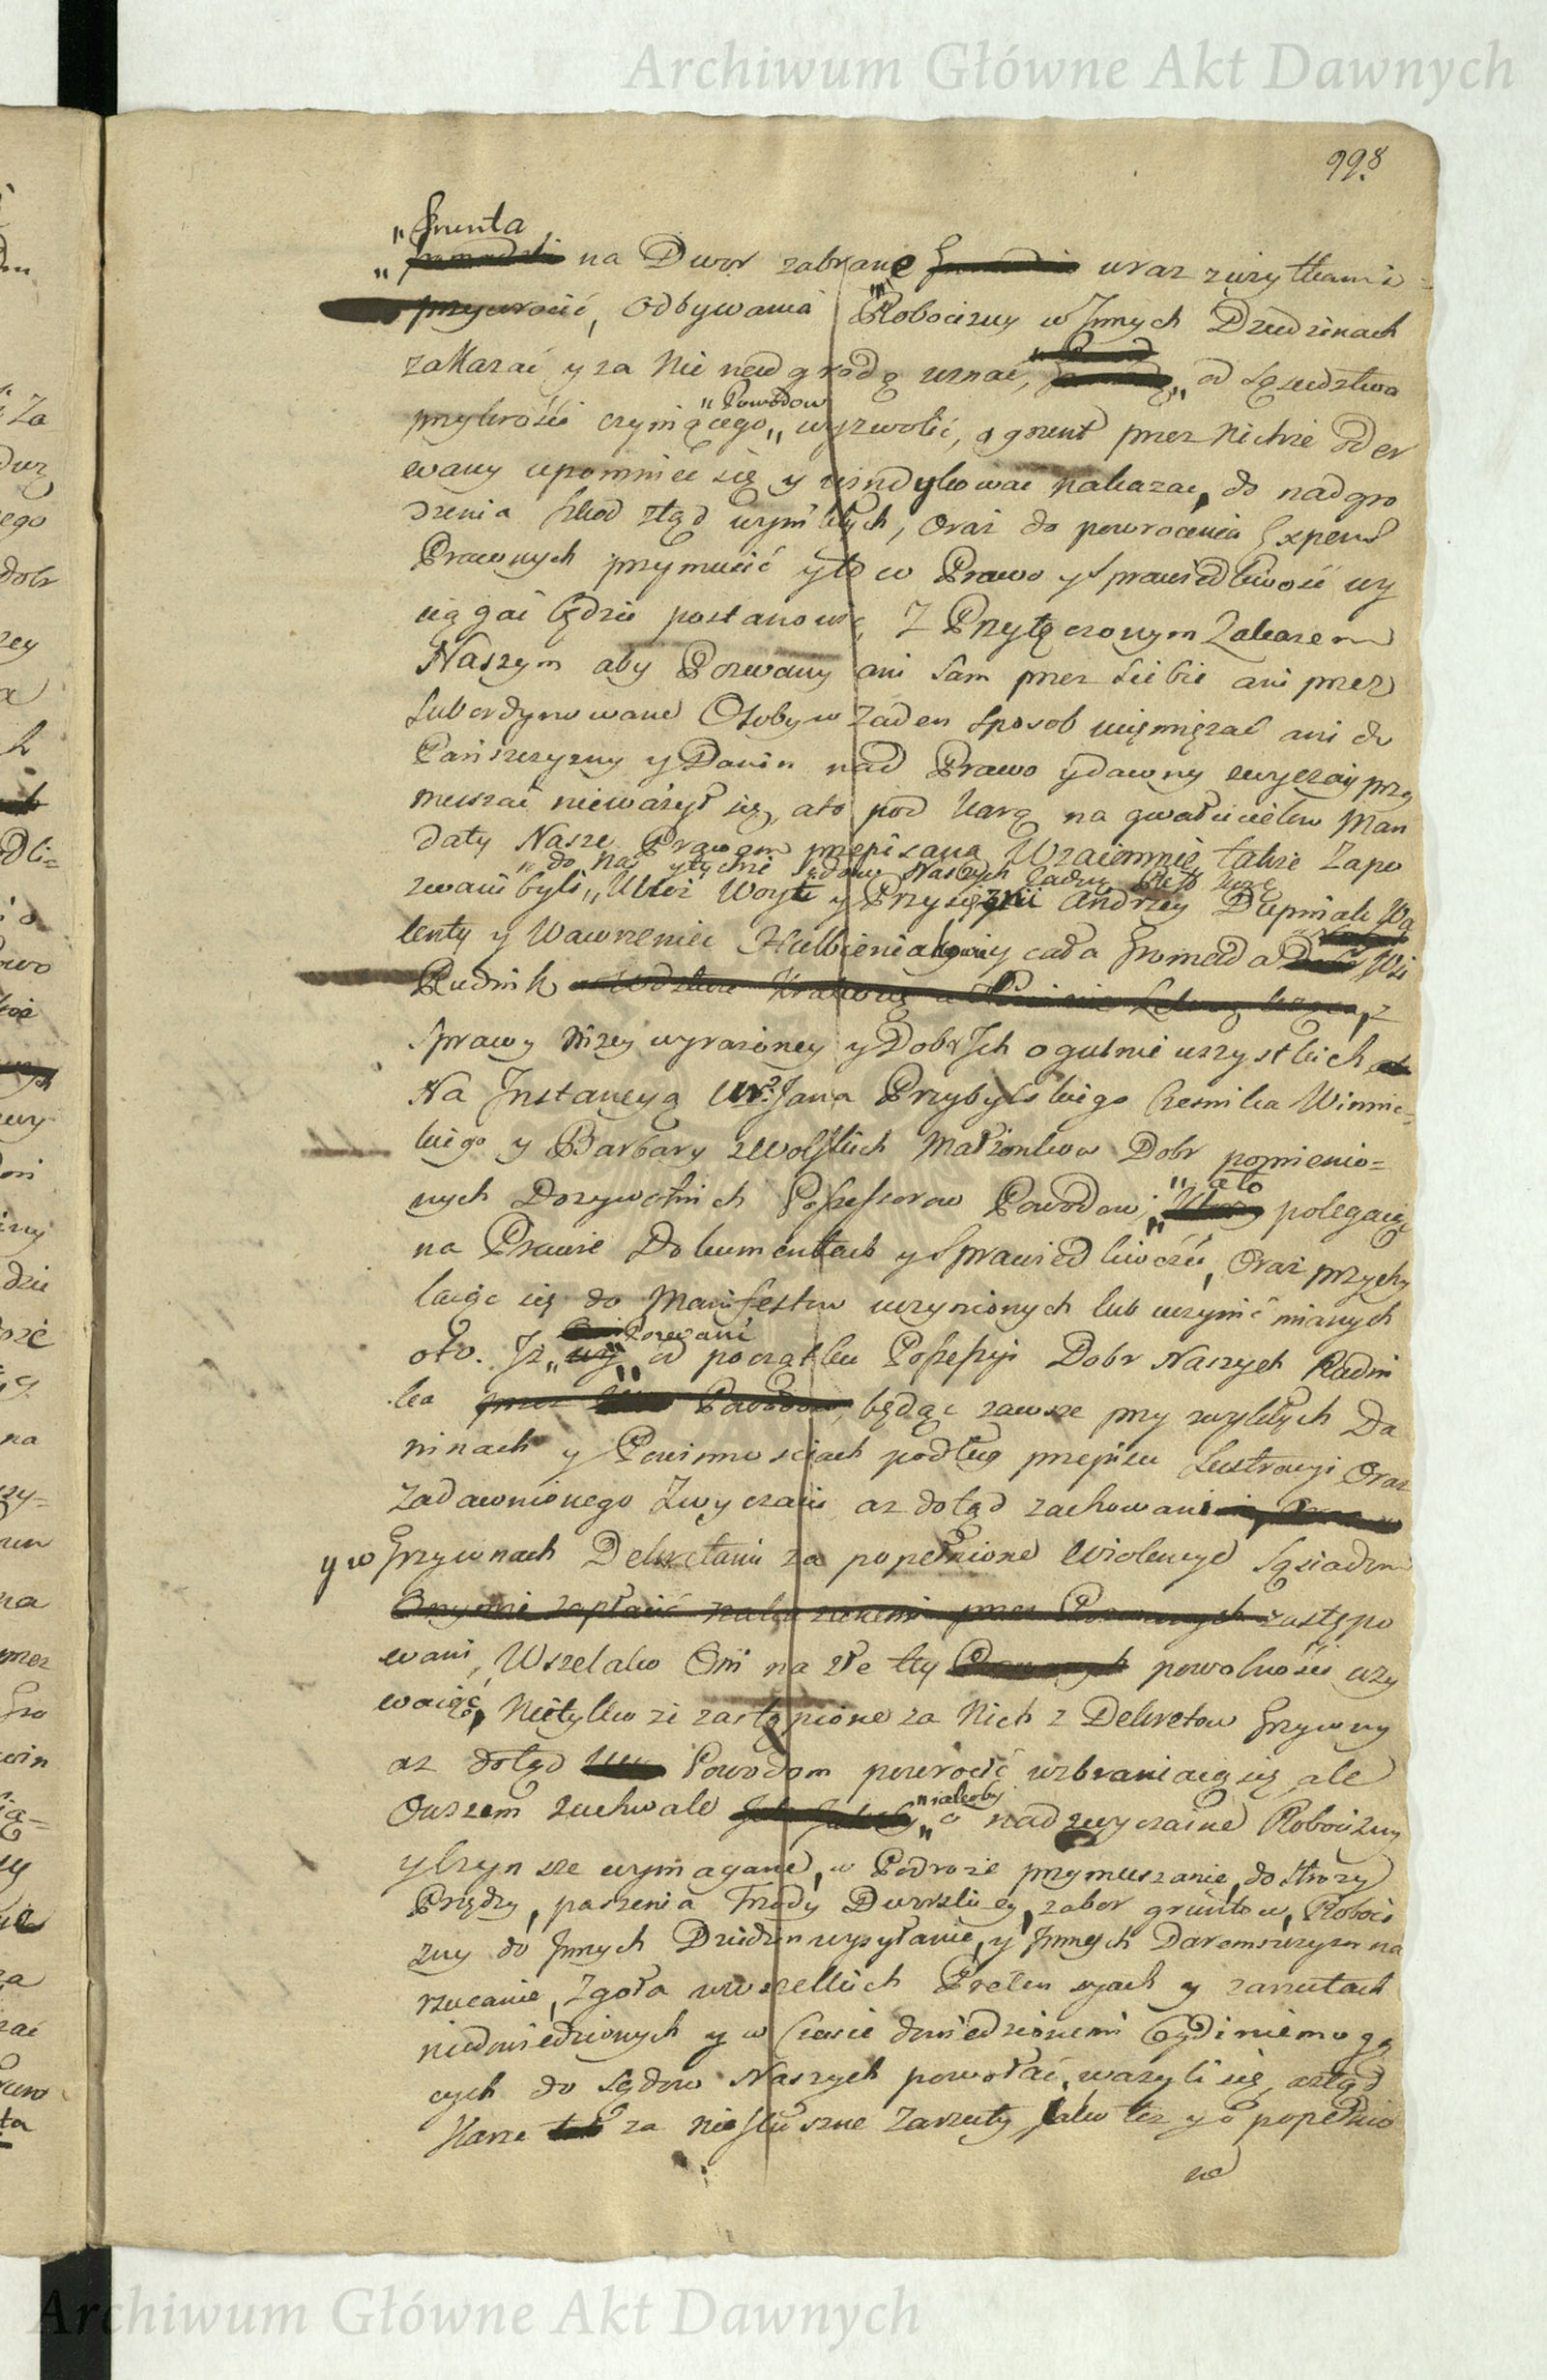 Archiwum Główne Akt Dawnych
998
„Grunta
„ na Dwor zabrane uraz zużytkami
przywrocić, Odbywania Robocizny w Jnnych Dziedzinach
zakazać y za Nie nadgrodę uznać, od Sąsiedztwa
„Powodow
przykrości czyniącego„ wyzwolić, o grunt przez Nichże oder
wany upomniec się y windykowac nakazac, do nadgro
dzenia szkod ztąd wynikłych, oraz do powrocenia Expens
Prawnych przymusić y to co Prawo y Sprawiedliwość wy
ciągać będzie postanowić, Z Przyłączonym Zakazem
Naszym aby Pozwany ani sam przez siebie ani przez
Subordynowane Osoby w żaden Sposob uciemiężać ani do
Pańszczyzny y Danin nad Prawo y dawny zwyczay przy
muszać nieważył się, a to pod karą na gwałcicielow Man
daty Nasze Prawem przepisaną Wzaiemnie także Zapo
„do Nas y tychże Sądow Naszych
zwani byli„ Woyt y Przysiężni Andrzey Wa
lenty y Wawrzeniec cała Gromada Wsi
Rudnik z
Sprawy niżey wyrażoney y Dobr Jch ogulnie wszystkich
Na Jnstancyą Ur. Jana Przybylskiego Czesnika Winnic-
kiego y Barbary z Wolskich Małżonkow Dobr pomienio=
nych Dożywotnich Possessorow Powodow, „a to polegaiąc
na Prawie Dokumentach y Sprawiedliwości, Oraz przychy
laiąc się do Manifestow uczynionych lub uczynić mianych
Pozwani
oto. Jż „ od początku Possessyi Dobr Naszych Rudni
ka będąc zawsze przy zwykłych Da
ninach y Powinnościach podług przepisu Lustracyi Oraz
Zadawnionego Zwyczaiu az dotąd zachowani
y w Grzywnach Dekretami za popełnione Wiolencye Sąsiadom
zastępo
wani, Wszelako Oni na złe tey powolności uży
waiąc, Nietylko że zastąpione za Nich z Dekretow Grzywny
az dotąd Powodom powrocić wzbraniaią się ale
„niakoby
Owszem zuchwale „o nadzwyczaine Robocizny
y Czynsze wymagane, w Podroże przymuszanie, do Stroży
Przędzy, paszenia Trzody Dworskiey, zabor gruntow, Roboci
zny do Jnnych Dziedzin wysyłanie, y Jnnych Daremszczyzn na
rzucanie, Zgoła wwszelkich Pretensyach y zarzutach
niedowiedzionych y w Czasie dowiedzionemi bydź niemogą
cych do Sądow Naszych powołać, ważyli się, ztąd
Karze za niesłuszne Zarzuty jako też y o popełnio
ne
Archiwum Główne Akt Dawnych